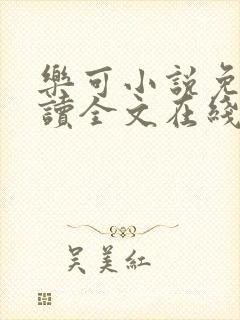 樂可小說免
讀全文在綫
吳美紅